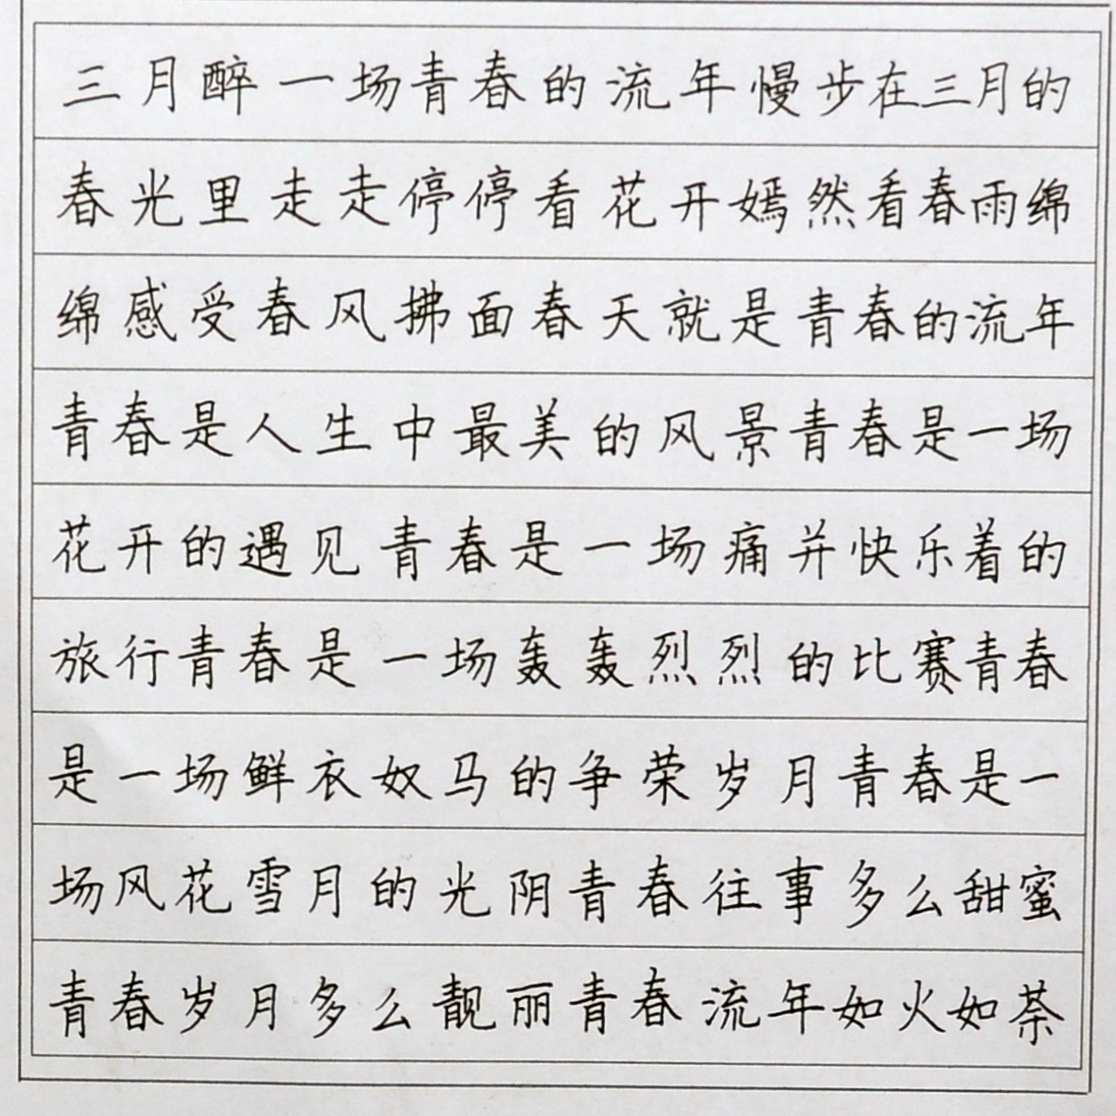 三月醉一场青春的流年慢步在三月的
春光里走走停停看花开嫣然看春雨绵
绵感受春风拂面春天就是青春的流年
青春是人生中最美的风景青春是一场
花开的遇见青春是一场痛并快乐着的
旅行青春是一场轰轰烈烈的比赛青春
是一场鲜衣奴马的争荣岁月青春是一
场风花雪月的光阴青春往事多么甜蜜
青春岁月多么靓丽青春流年如火如荼